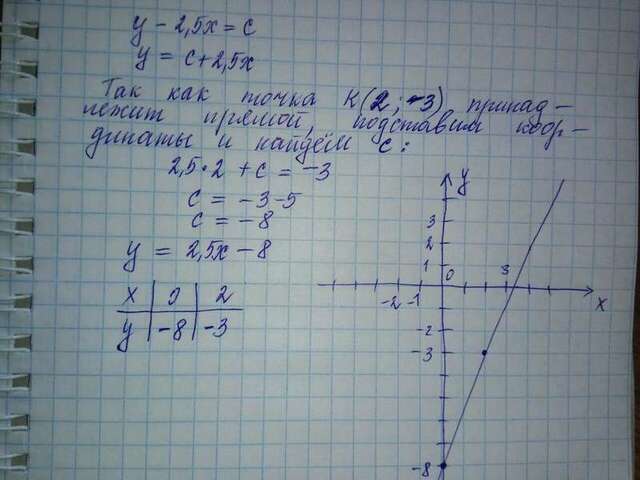 y - 2,5x = c
y = c + 2,5x
Так как точка K(2; -3) принад-
лежит прямой, подставим коор-
динаты и найдём c:
2,5 · 2 + c = -3
c = -3-5
c = -8
y = 2,5x - 8
x | 0 | 2
y | -8 | -3
y
3
2
1
0
3
-2 -1
x
-2
-3
-8